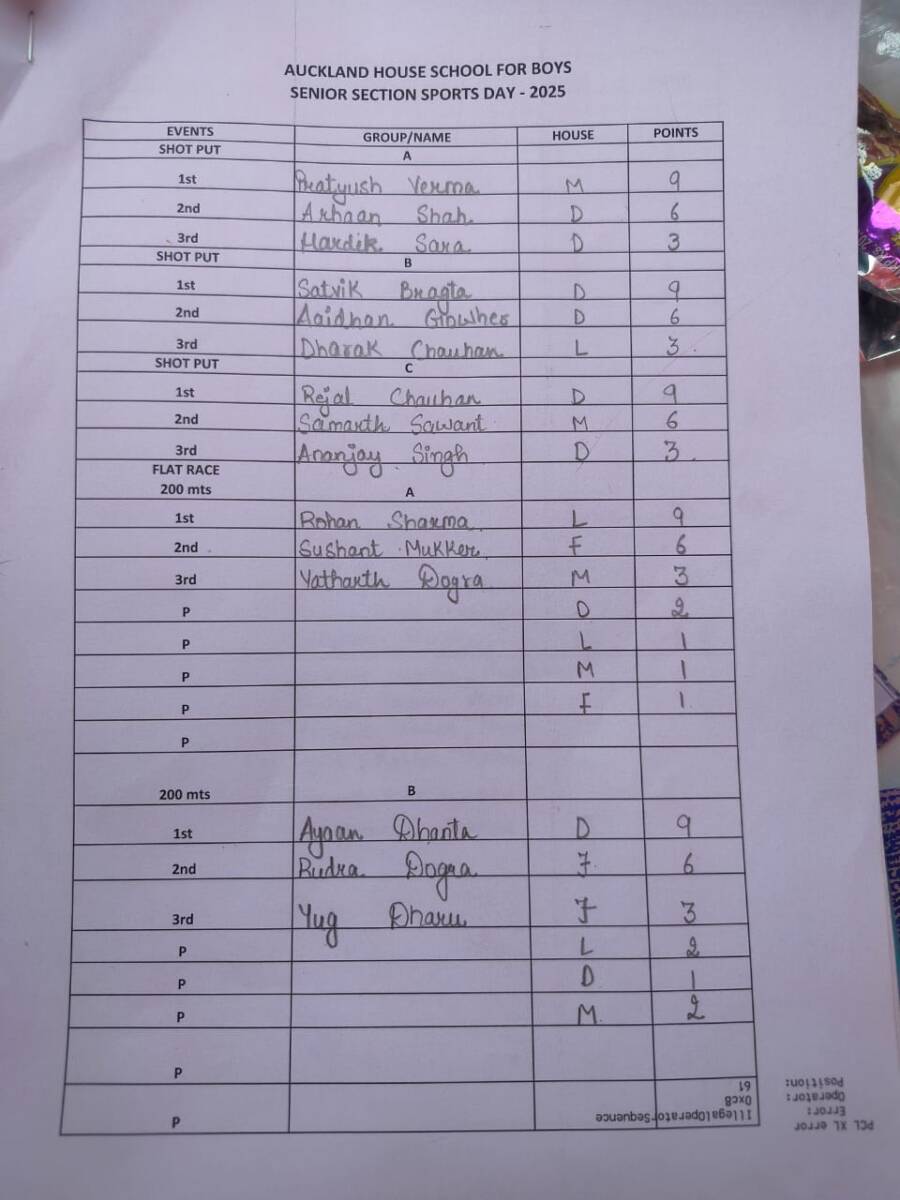 AUCKLAND HOUSE SCHOOL FOR BOYS
SENIOR SECTION SPORTS DAY - 2025
EVENTS GROUP/NAME HOUSE POINTS
SHOT PUT A
1st Pratyush Verma M 9
2nd Arhaan Shah D 6
3rd Hardik Sara D 3
SHOT PUT B
1st Satvik Bragta D 9
2nd Aaidhan D 6
3rd Dharak Chauhan L 3
SHOT PUT C
1st Rejal Chauhan D 9
2nd Samarth Sawant M 6
3rd Ananjay Singh D 3
FLAT RACE
200 mts A
1st Rohan Sharma L 9
2nd Sushant Mukker F 6
3rd Yatharth Dogra M 3
P D 2
P L 1
P M 1
P F 1
P
200 mts B
1st Ayaan Dhanta D 9
2nd Rudra Dogra F 6
3rd Yug Dharu F 3
P L 2
P D 1
P M 2
P
P
PCL XL error
Error: IllegalOperatorSequence
Operator: 0xc8
Position: 61